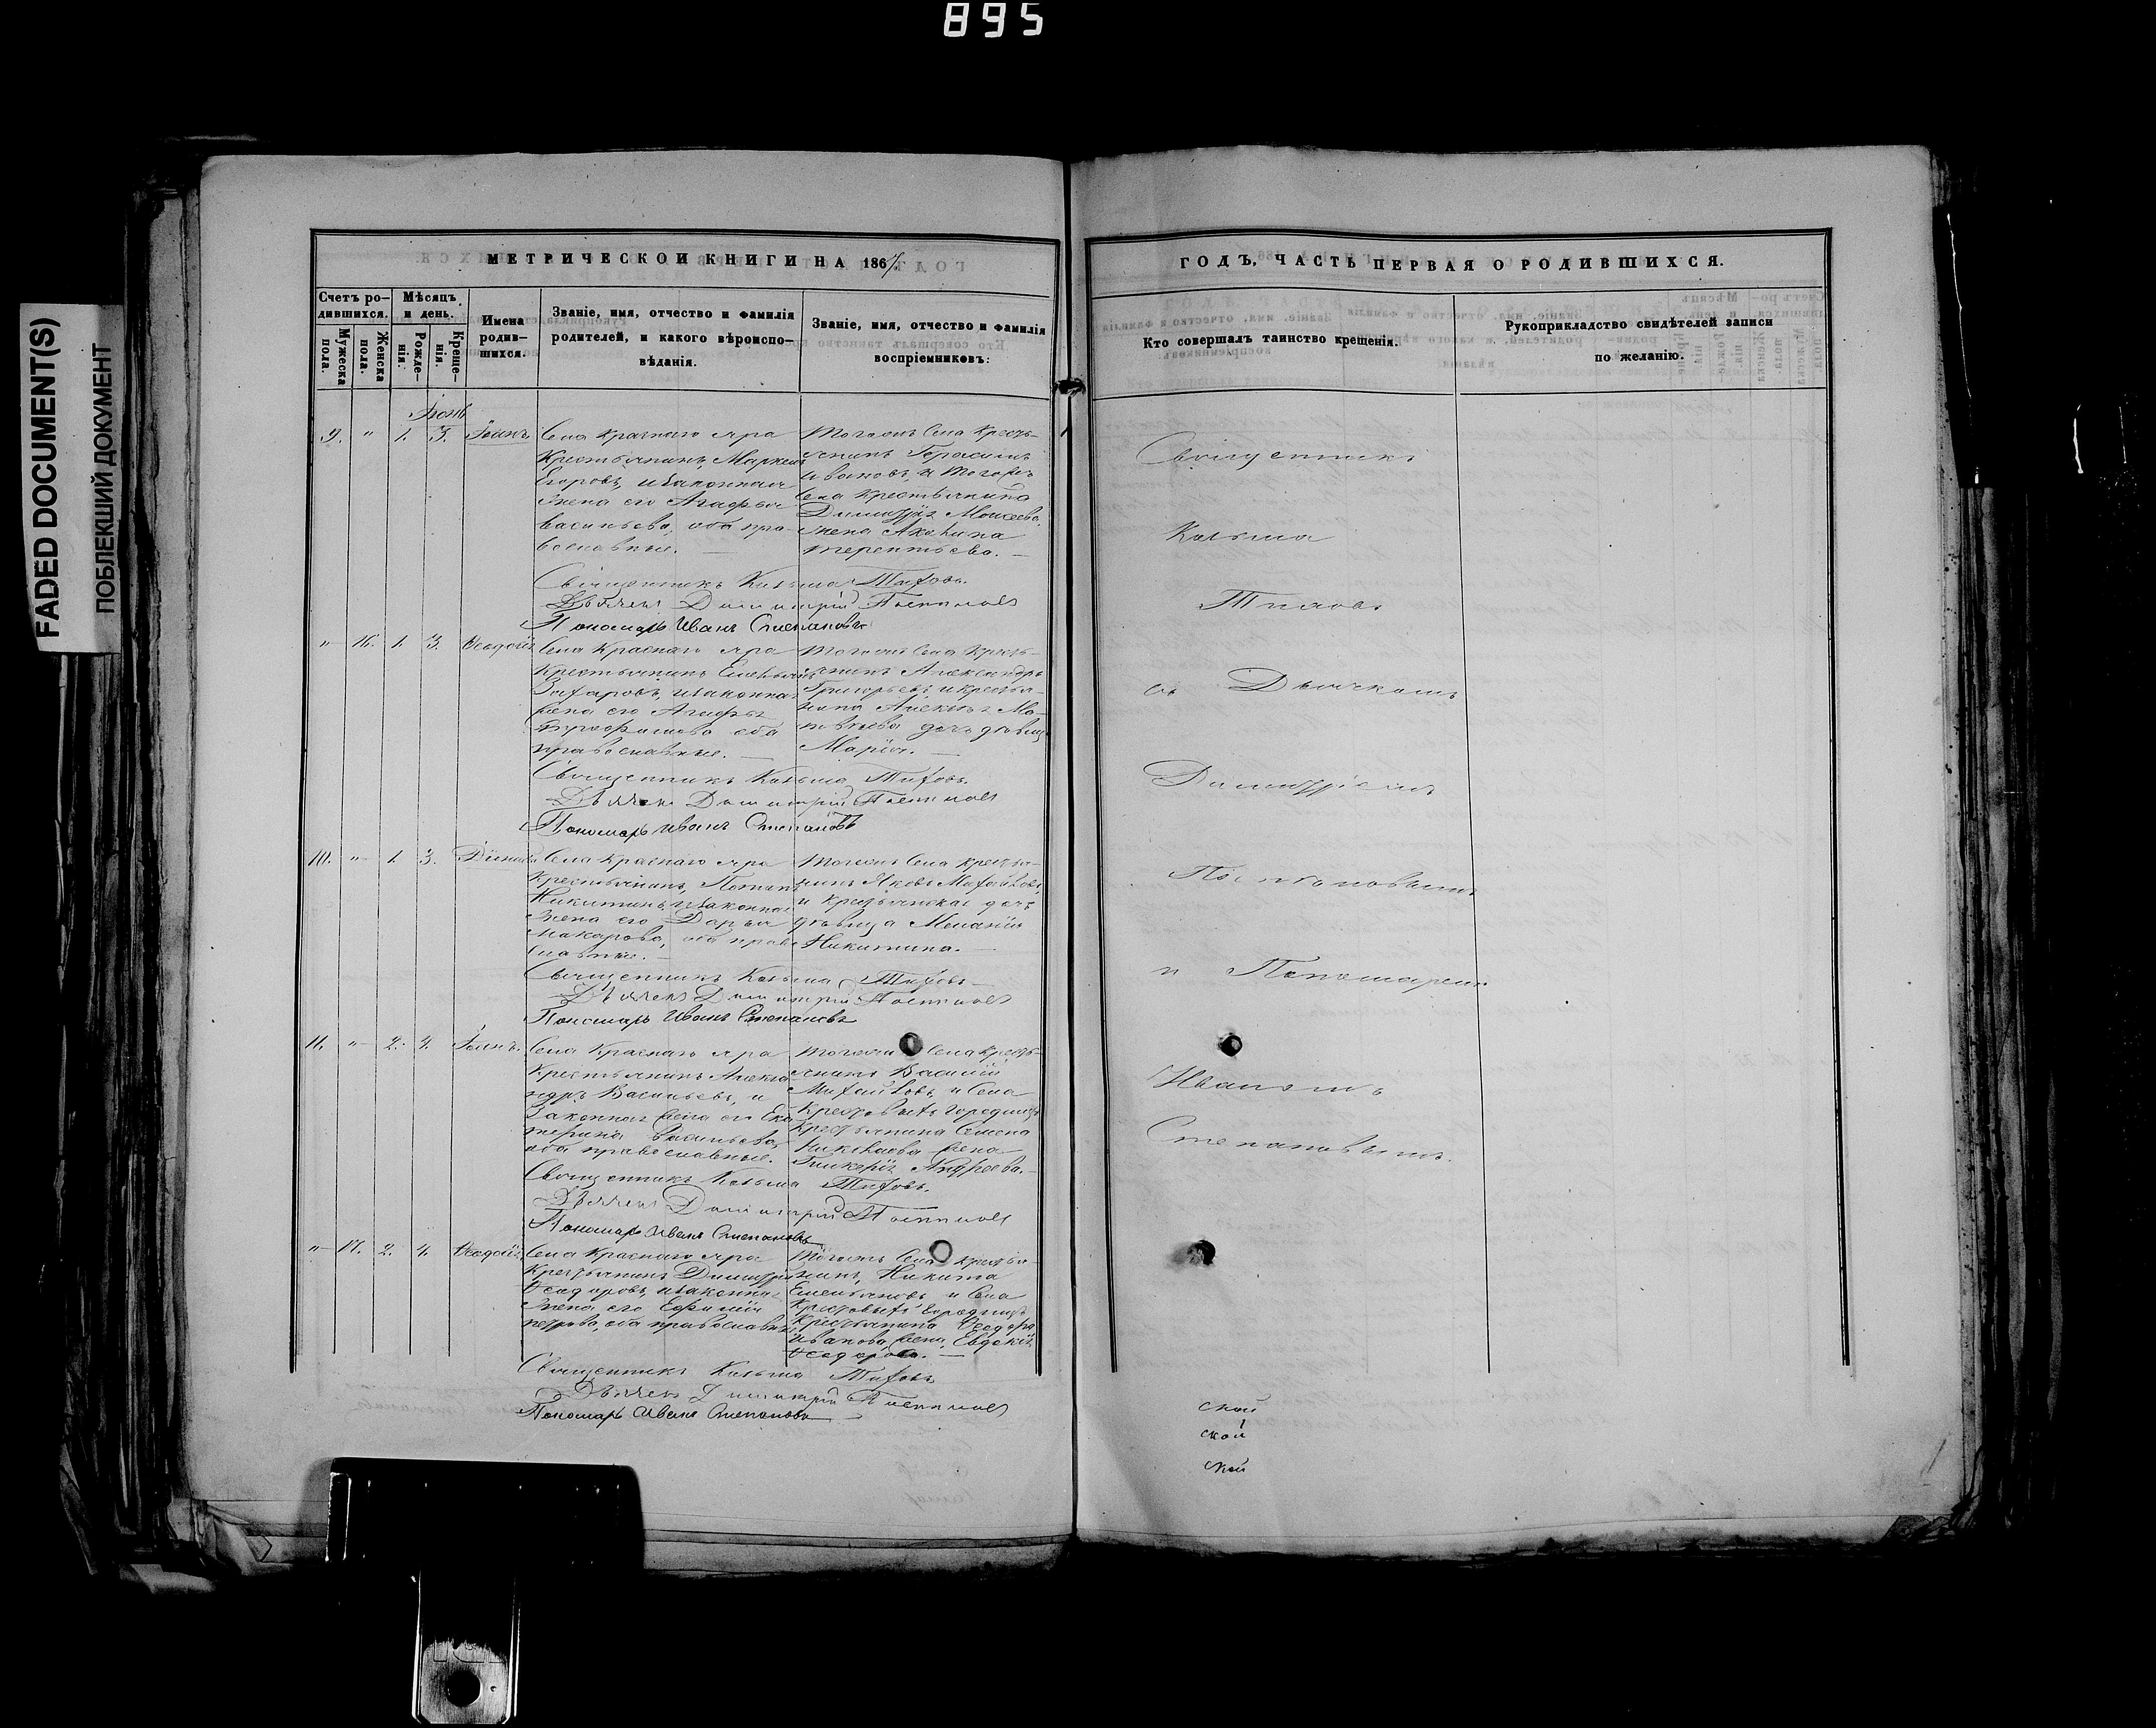 895
FADED DOCUMENT(S)
ПОБЛЕКШИЙ ДОКУМЕНТ
МЕТРИЧЕСКОЙ КНИГИ НА 1867
Счетъ ро-
дившихся.
Мужеска
пола.
Женска
пола.
Мѣсяцъ
и день.
Рожде-
нія.
Креще-
нія.
Имена
родив-
шихся.
Званіе, имя, отчество и фамилія
родителей, и какого вѣроиспо-
вѣданія.
Званіе, имя, отчество и фамилія
воспріемниковъ:
9. " 1. 3. Іоаннъ
Села Краснаго Яра
Крестьянинъ, Маркелъ
Егоровъ, и законная
жена его Агафья
Васильева, оба пра-
вославные.
Тогоже Села Кресть-
янинъ Герасимъ
Ивановъ, и тогоже
Села Крестьянина
Димитрія Моисеева
жена Акулина
Терентьева.
Священникъ Козьма Тиховъ.
Дьячекъ Димитрій
Пономарь Иванъ Степановъ
" 16. 1. 3.
Села Краснаго Яра
Крестьянинъ Емельянъ
Захаровъ, и законная
жена его Агафья
оба
православные.
Тогоже Села Кресть-
янинъ Александръ
Григорьевъ, и крестья-
нина Алексея Ма-
твѣева дочь дѣвица
Марія.
Священникъ Козьма Тиховъ.
Дьячекъ Димитрій
Пономарь Иванъ Степановъ
10. " 1. 3.
Села Краснаго Яра
Крестьянинъ, Потапъ
Никитинъ, и законная
жена его Дарья
Макарова, оба право-
славные.
Тогоже Села крестья-
нинъ Яковъ Михайловъ,
и крестьянская дочь
дѣвица Меланія
Никитина.
Священникъ Козьма Тиховъ
Дьячекъ Димитрій
Пономарь Иванъ Степановъ
11. " 2. 4. Іоаннъ.
Села Краснаго Яра
Крестьянинъ Алекса-
ндръ Васильевъ, и
Законная жена его Ека-
терина Васильева,
оба православные.
Тогоже Села Кресть-
янинъ Василій
Михайловъ, и Села
Крестовыхъ Городищъ
Крестьянина Семена
Николаева жена
Гликерія Андреева.
Священникъ Козьма Тиховъ.
Дьячекъ Димитрій
Пономарь Иванъ Степановъ
" 17. 2. 4.
Села Краснаго Яра
Крестьянинъ Димитрій
Ѳеодоровъ, и законная
жена его Ефимія
Петрова, оба православные
Тогоже Села крестья-
нинъ, Никита
Емельяновъ, и Села
Крестовыхъ Городищъ
Крестьянина Ѳеодора
Иванова жена, Евдокія
Ѳеодорова.
Священникъ Козьма Тиховъ
Дьячекъ Димитрій
Пономарь Иванъ Степановъ
ГОДЪ, ЧАСТЬ ПЕРВАЯ О РОДИВШИХСЯ.
Кто совершалъ таинство крещенія.
Рукоприкладство свидѣтелей записи
по желанію.
Священникъ
Козьма
Тиховъ
съ Дьячкомъ
Димитріемъ
и Пономаремъ
Иваномъ
Степановымъ.
ской
ской
ской